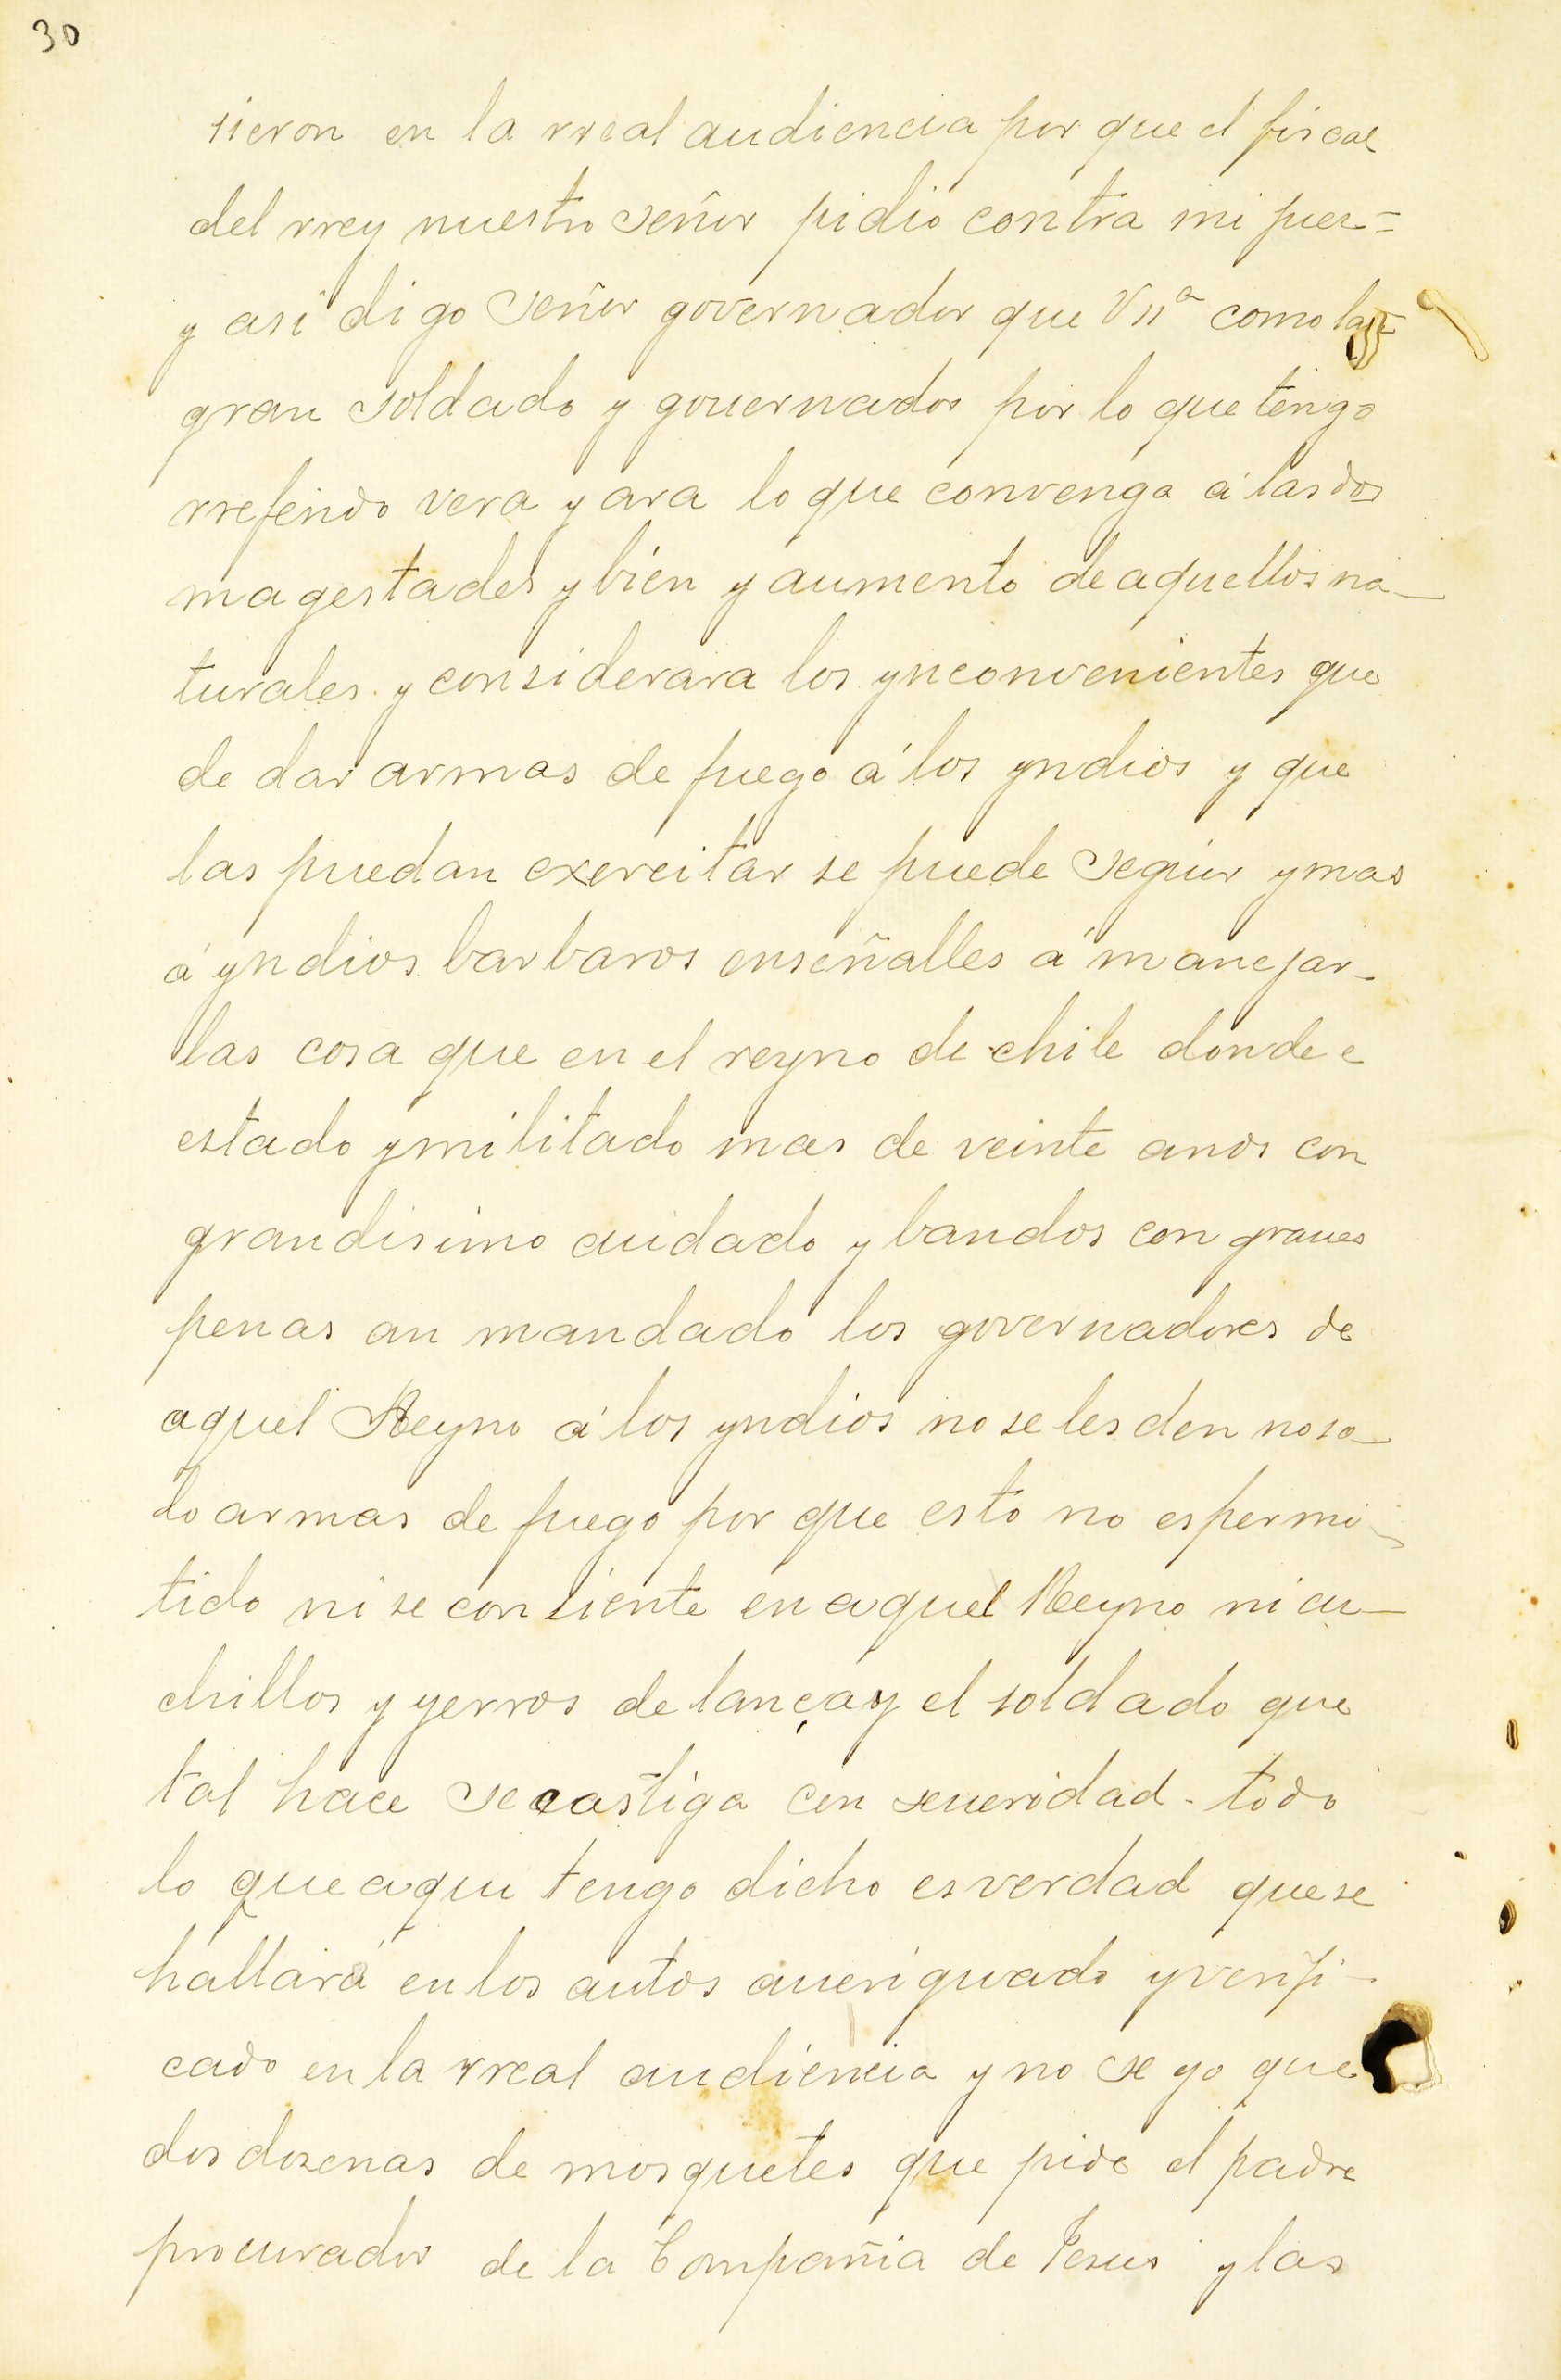 30
sieron en la rreal audiencia por que el fiscal
del rrey nuestro señor pidio contra mi pues=
y asi digo señor governador que Vsª como
gran soldado y gouernador por lo que tengo
rreferido vera y ara lo que convenga á las dos
magestades y bien y aumento de aquellos na-
turales y considerara los ynconvenientes que
de dar armas de fuego á los yndios y que
las puedan exercitar se puede seguir y mas
á yndios barbaros enseñalles á manejar-
las cosa que en el reyno de chile donde e
estado y militado mas de veinte anos con
grandisimo cuidado y bandos con graues
penas an mandado los governadores de
aquel Reyno á los yndios no se les den no so-
lo armas de fuego por que esto no es permi-
tido ni se consiente en aquel Reyno ni cu-
chillos y yerros de lança y el soldado que
tal hace se castiga con seueridad - todo
lo que aqui tengo dicho es verdad que se
hallará en los autos aueriguado y verifi-
cado en la rreal audiencia y no se yo que
dos dosenas de mosquetes que pide el padre
procurador de la Compañia de Jesus y las